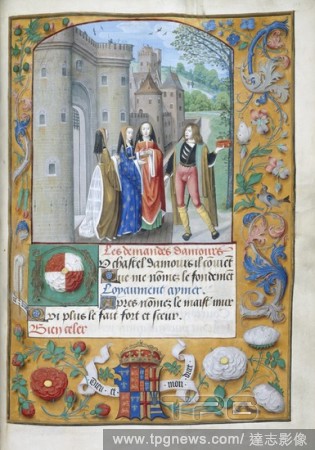 Les demandes damours
Chastel damours il couiet
Que me nomes le fondemet
Loyaument aymer
Apres nomes le maist mur
Qui plus le fait fort et seur
Bien celer
Dieu et mon droit
TPG
www.tpgnews.com/達志影像